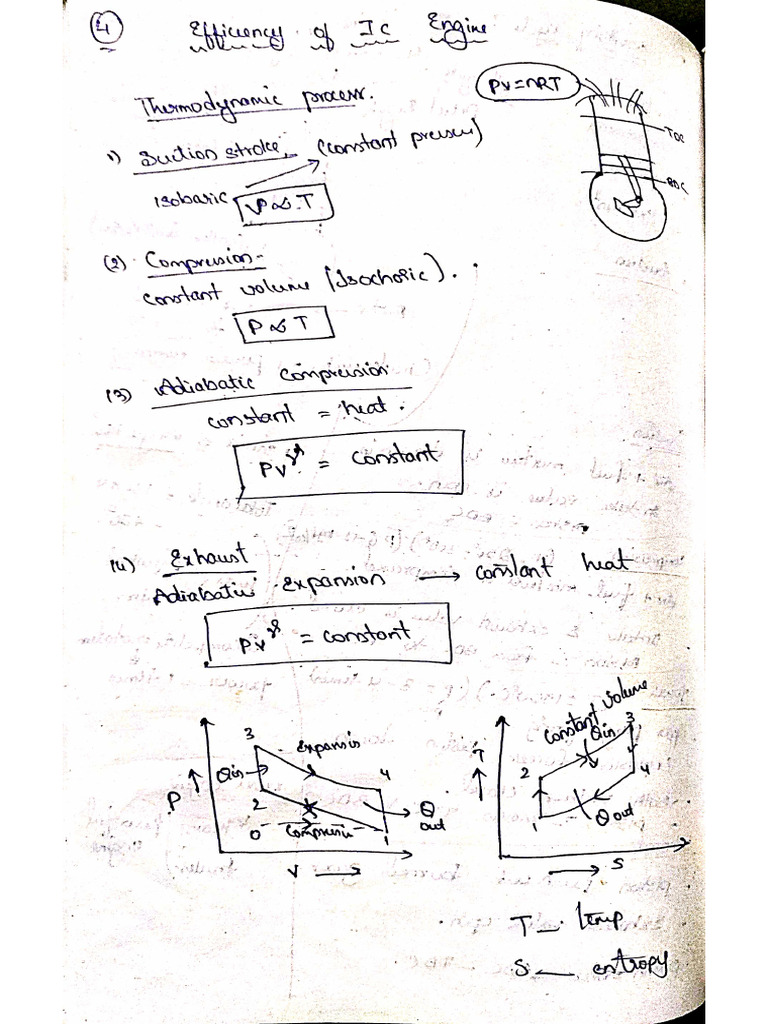 4
Efficiency of Ic Engine
Thermodynamic process.
PV=nRT
TDC
BDC
1) Suction stroke (constant pressur)
Isobaric V∝T
(2) Compression
constant volume (Isochoric).
P∝T
(3) Adiabatic compression
constant = heat.
PV^γ = constant
(4) Exhaust
Adiabatic expansion → constant heat
PV^γ = constant
3 Expansio
Qin
4
P
2
0
Compressi
1
Q out
V
constant volume
3
Qin
T
2
4
1
Q out
S
T — temp
S — entropy